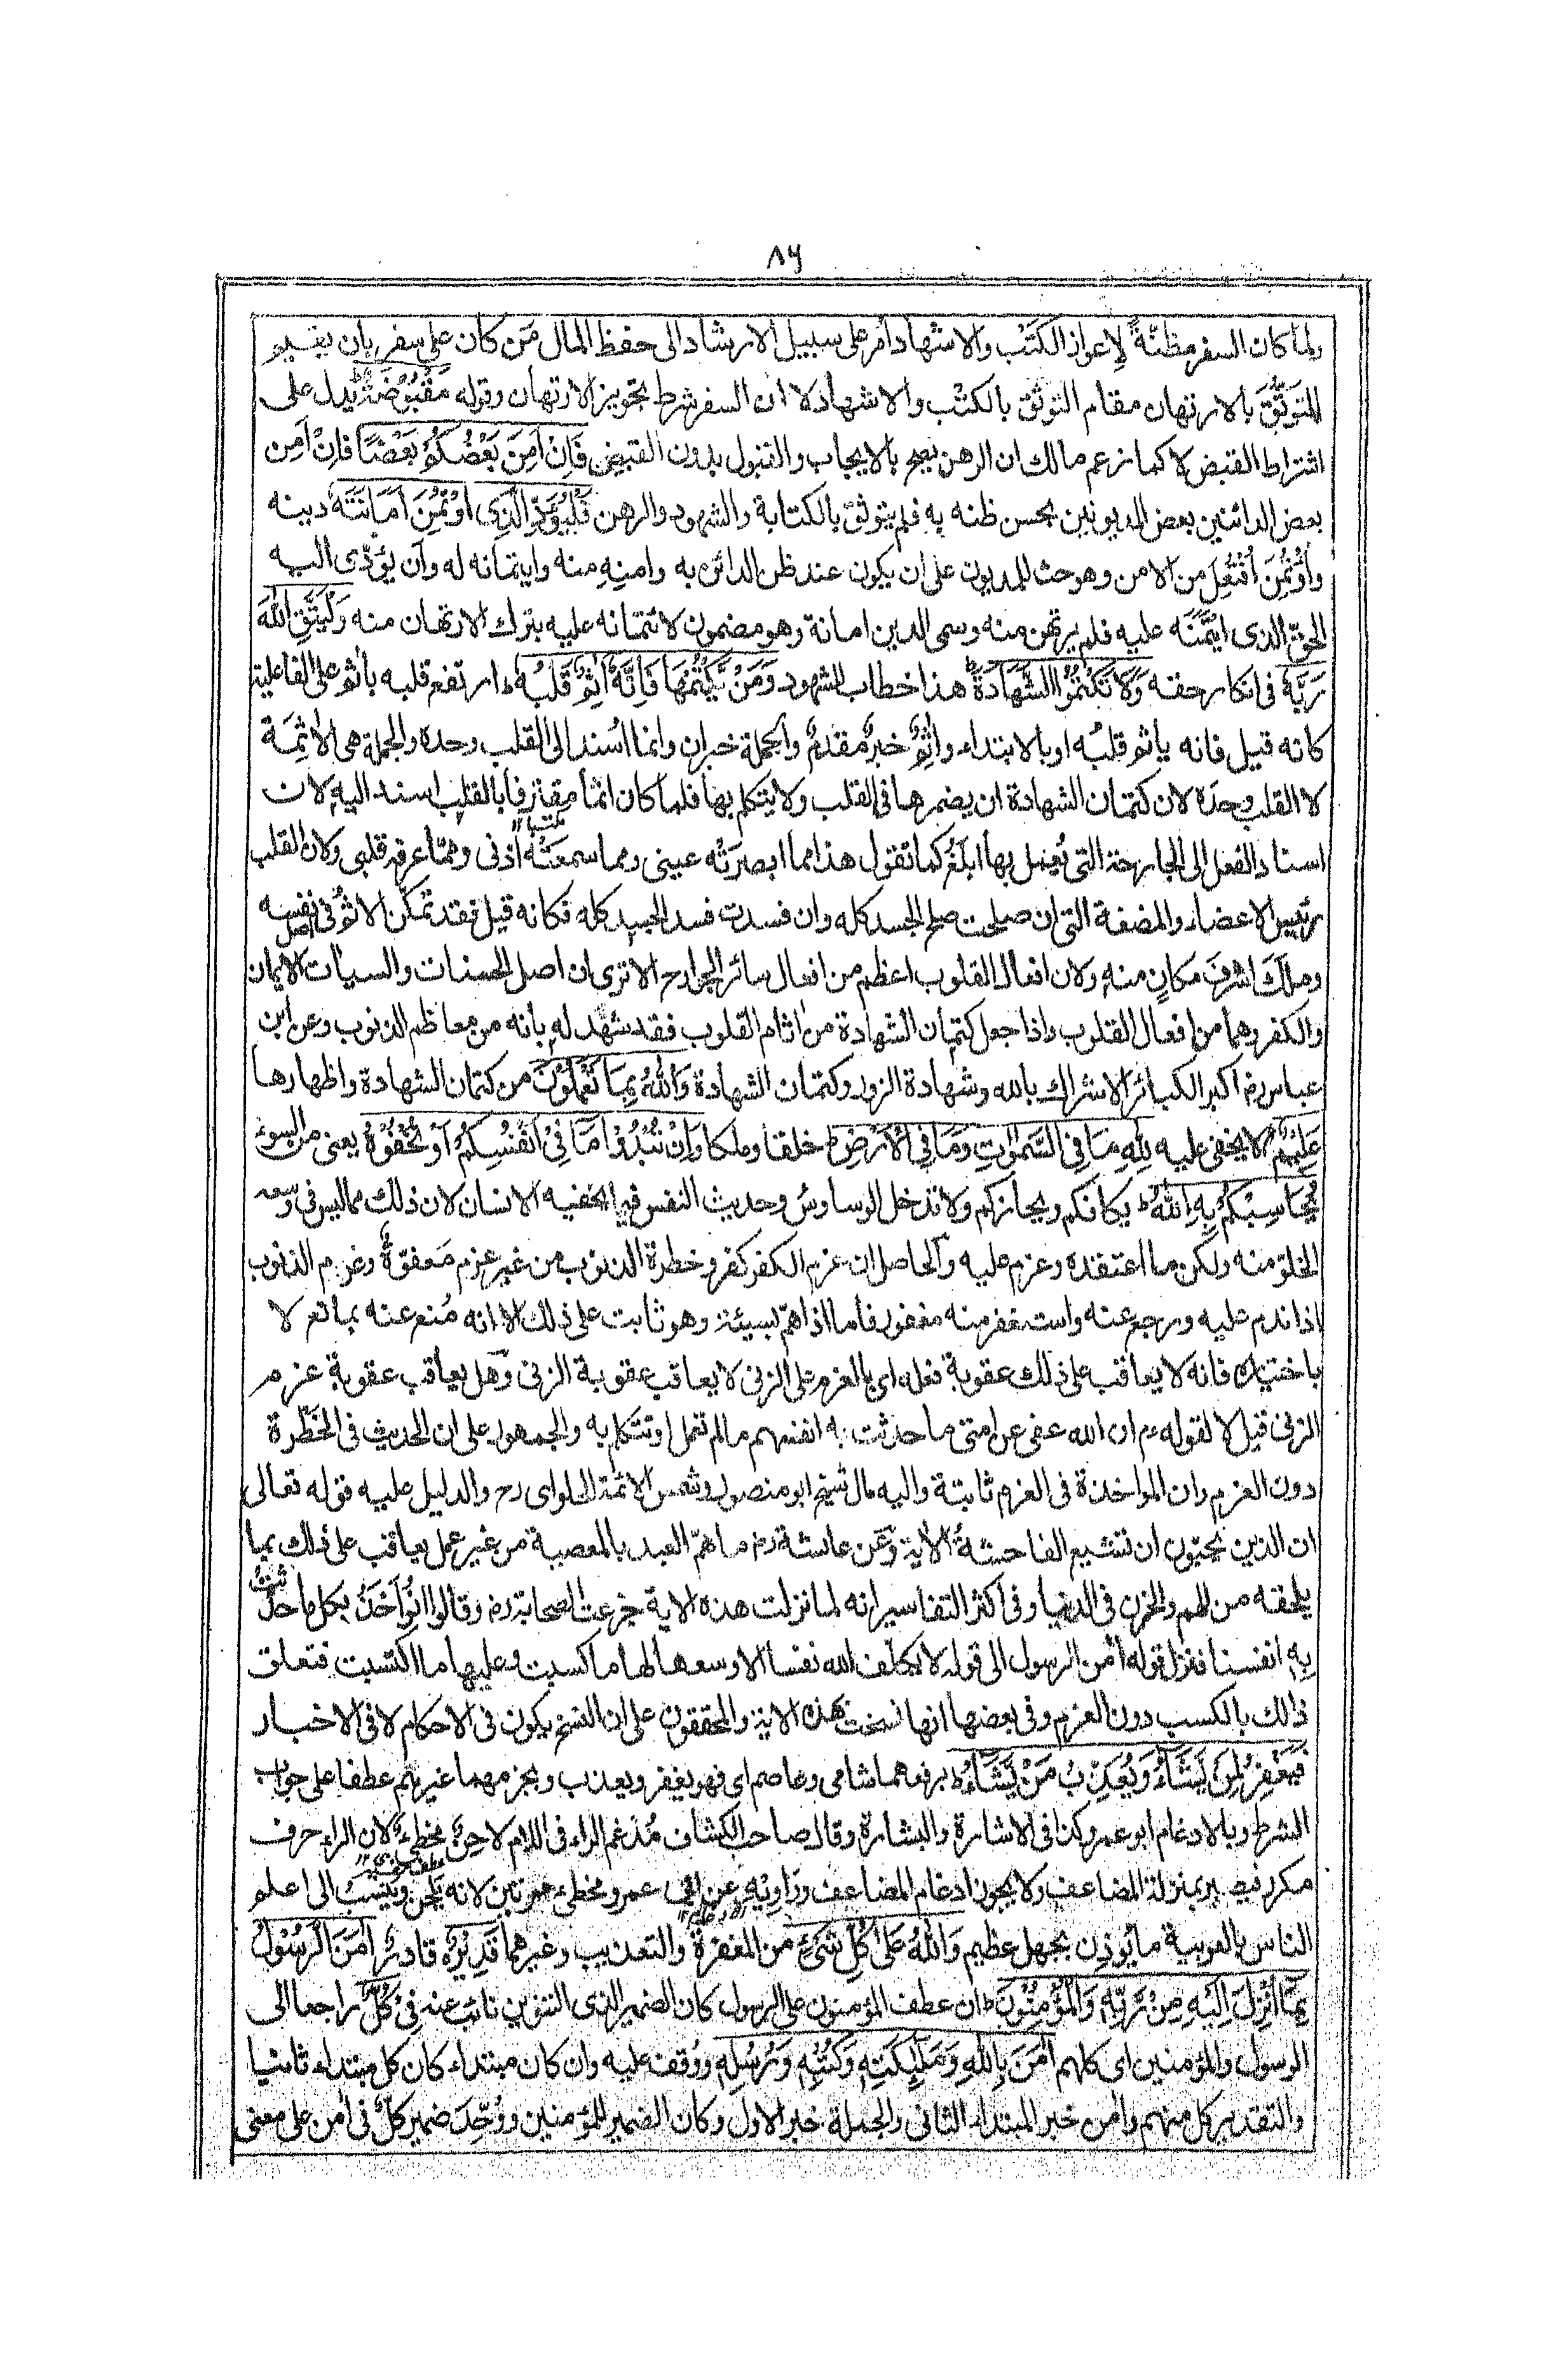 ٨٦
ولما كان السفر مظنّةً لِاعواز الكَتْب والاشهاد أمر على سبيل الارشاد الى حفظ المال مَن كان على سفر بان يقيم
التَوثُّقَ بالارتهان مقام التوثق بالكتْب والاشهاد لا ان السفر شرط تجويز الارتهان وقوله مَقْبُوْضَةٌ يدل على
اشتراط القبض لا كما زعم مالك ان الرهن يصح بالايجاب والقبول بدون القبض فَاِنْ اَمِنَ بَعْضُكُمْ بَعْضًا فاِنْ اَمِن
بعض الدائنين بعض المديونين بحسن ظنه به فلم يتوثق بالكتابة والشهود والرهن فَلْيُؤَدِّ الَّذِى اؤْتُمِنَ اَمَانَتَهٗ دينه
وأُوْتُمِنَ اُفْتُعِلَ من الامن وهو حث للمديون على ان يكون عند ظن الدائن به وامنِهٖ منه وايتمانه له وأن يؤدّى اليه
الحقّ الذى ايتَمَنَه عليه فلم يرتهن منه وسمى الدين امانة وهو مضمون لائتمانه عليه بترك الارتهان منه وَلْيَتَّقِ اللّٰهَ
رَبَّهٗ فى انكار حقه وَلَا تَكْتُمُوا الشَّهَادَةَ ط هذا خطاب للشهود وَمَنْ يَّكْتُمْهَا فَاِنَّهٗٓ اٰثِمٌ قَلْبُهٗ ط ارتفع قلبه بأثم على الفاعلية
كانه قيل فانه يأثم قلبُه او بالابتداء واٰثِمٌ خبرٌ مقدمٌ والجملة خبر ان وانما اُسند الى القلب وحده والجملة هى الاٰثِمَة
لا القلب وحدَه لان كتمان الشهادة ان يضمرها فى القلب ولا يتكلم بها فلما كان اثمًا مقترفا بالقلب اسند اليه لان
مكتسبا ١٢
اسناد الفعل الى الجارحة التى يُعمل بها ابلَغُ كما تقول هذا مما ابصرَتْه عينى ومما سمعَتْه اذنى وممّا عرفه قلبى ولان القلب
رئيس الاعضاء والمضغة التى ان صلحت صلح الجسد كله وان فسدت فسد الجسد كله فكانه قيل فقد تمكّن الاثمُ فى اصل نفسه
وملَك اشرفَ مكانٍ منه ولان افعال القلوب اعظم من افعال سائر الجوارح الا ترى ان اصل الحسنات والسيأت الايمان
والكفر وهما من افعال القلوب واذا جعل كتمان الشهادة من اٰثام القلوب فقد شهد له بانه من معاظم الذنوب وعن ابن
عباس رض اكبر الكبائر الاشراك بالله وشهادة الزور وكتمان الشهادة وَاللّٰهُ بِمَا تَعْمَلُوْنَ من كتمان الشهادة واظهارها
عَلِيْمٌ لا يخفى عليه لِلّٰهِ مَا فِى السَّمٰوٰتِ وَمَا فِى الْاَرْضِ ط خلقا وملكا وَاِنْ تُبْدُوْا مَا فِىْٓ اَنْفُسِكُمْ اَوْ تُخْفُوْهُ يعنى من السوء
يُحَاسِبْكُمْ بِهِ اللّٰهُ ط يكافكم ويجازكم ولا تدخل الوساوس وحديث النفس فيما يخفيه الانسان لان ذلك مما ليس فى وسعه
الخلو منه ولكن ما اعتقده وعزم عليه والحاصل ان عزم الكفر كفر وخطرة الذنوب من غير عزم مَعفوّةٌ وعزم الذنوب
اذا ندم عليه ورجع عنه واستغفر منه مغفور فاما اذا همّ بسيئة وهو ثابت على ذلك الا انه مُنع عنه بمانع لا
باختياره فانه لا يعاقب على ذلك عقوبة فعله اى بالعزم على الزنى لا يعاقب عقوبة الزنى وهل يعاقب عقوبة عزم
الزنى قيل لا لقوله ع م ان الله عفى عن امتى ما حدثت به انفسهم مالم تعمل او تتكلم به والجمهور على ان الحديث فى الخَطْرة
دون العزم وان المواخذة فى العزم ثابتة واليه مال شيخ ابو منصور وشمس الائمة الحلوائى رح والدليل عليه قوله تعالى
ان الذين يحبّون ان تشيع الفاحشةُ الاٰية وعَن عائشة رض ما همّ العبد بالمعصية من غير عمل يعاقب على ذلك بما
يلحقه من الهم والحزن فى الدنيا وفى اكثر التفاسير انه لما نزلت هذه الاٰية جزعت الصحابة رض وقالوا انُؤاخَذُ بكل ما حدّثتْ
بِهٖ انفسنا فنزل قوله اٰمن الرسول الى قوله لا يكلّف الله نفسا الا وسعها لها ما كسبت وعليها ما اكتسبت فتعلق
ذلك بالكسب دون العزم وفى بعضها انها نسخت بهذه الاٰية والمحققون على ان النسخ يكون فى الاحكام لا فى الاخبار
فَيَغْفِرُ لِمَنْ يَّشَآءُ وَيُعَذِّبُ مَنْ يَّشَآءُ ط برفعهما شامى وعاصم اى فهو يغفر ويعذب وبجزمهما غيرهم عطفا على جواب
الشرط وبالادغام ابو عمرو كذا فى الاشارة والبشارة وقال صاحب الكشاف مُدغم الراء فى اللام لاحِنٌ مخطئٌ لان الراء حرف
مكرر فيصير بمنزلة المضاعف ولا يجوز ادغام المضاعف ورَاوِيْهِ عن ابى عمرو مخطئ مرتين لانه يلحن وينْسُبُ الى اعلم
الناس بالعربية ما يُوذِن بجهل عظيم وَاللّٰهُ عَلٰى كُلِّ شَىْءٍ من المغفرة والتعذيب وغيرهما قَدِيْرٌ ه قادرٌ اٰمَنَ الرَّسُوْلُ
بِمَآ اُنْزِلَ اِلَيْهِ مِنْ رَّبِّهٖ وَالْمُؤْمِنُوْنَ ط ان عطف المؤمنون على الرسول كان الضمير الذى التنوين نائب عنه فى كُلٌّ راجعا الى
الرسول والمؤمنين اى كلهم اٰمَنَ بِاللّٰهِ وَمَلٰٓئِكَتِهٖ وَكُتُبِهٖ وَرُسُلِهٖ ووُقف عليه وان كان مبتداء كان كل مبتداء ثانيا
والتقدير كل منهم واٰمن خبر المبتداء الثانى والجملة خبر الاول وكان الضمير للمؤمنين ووُحِّدَ ضمير كلٌّ فى اٰمن على معنى